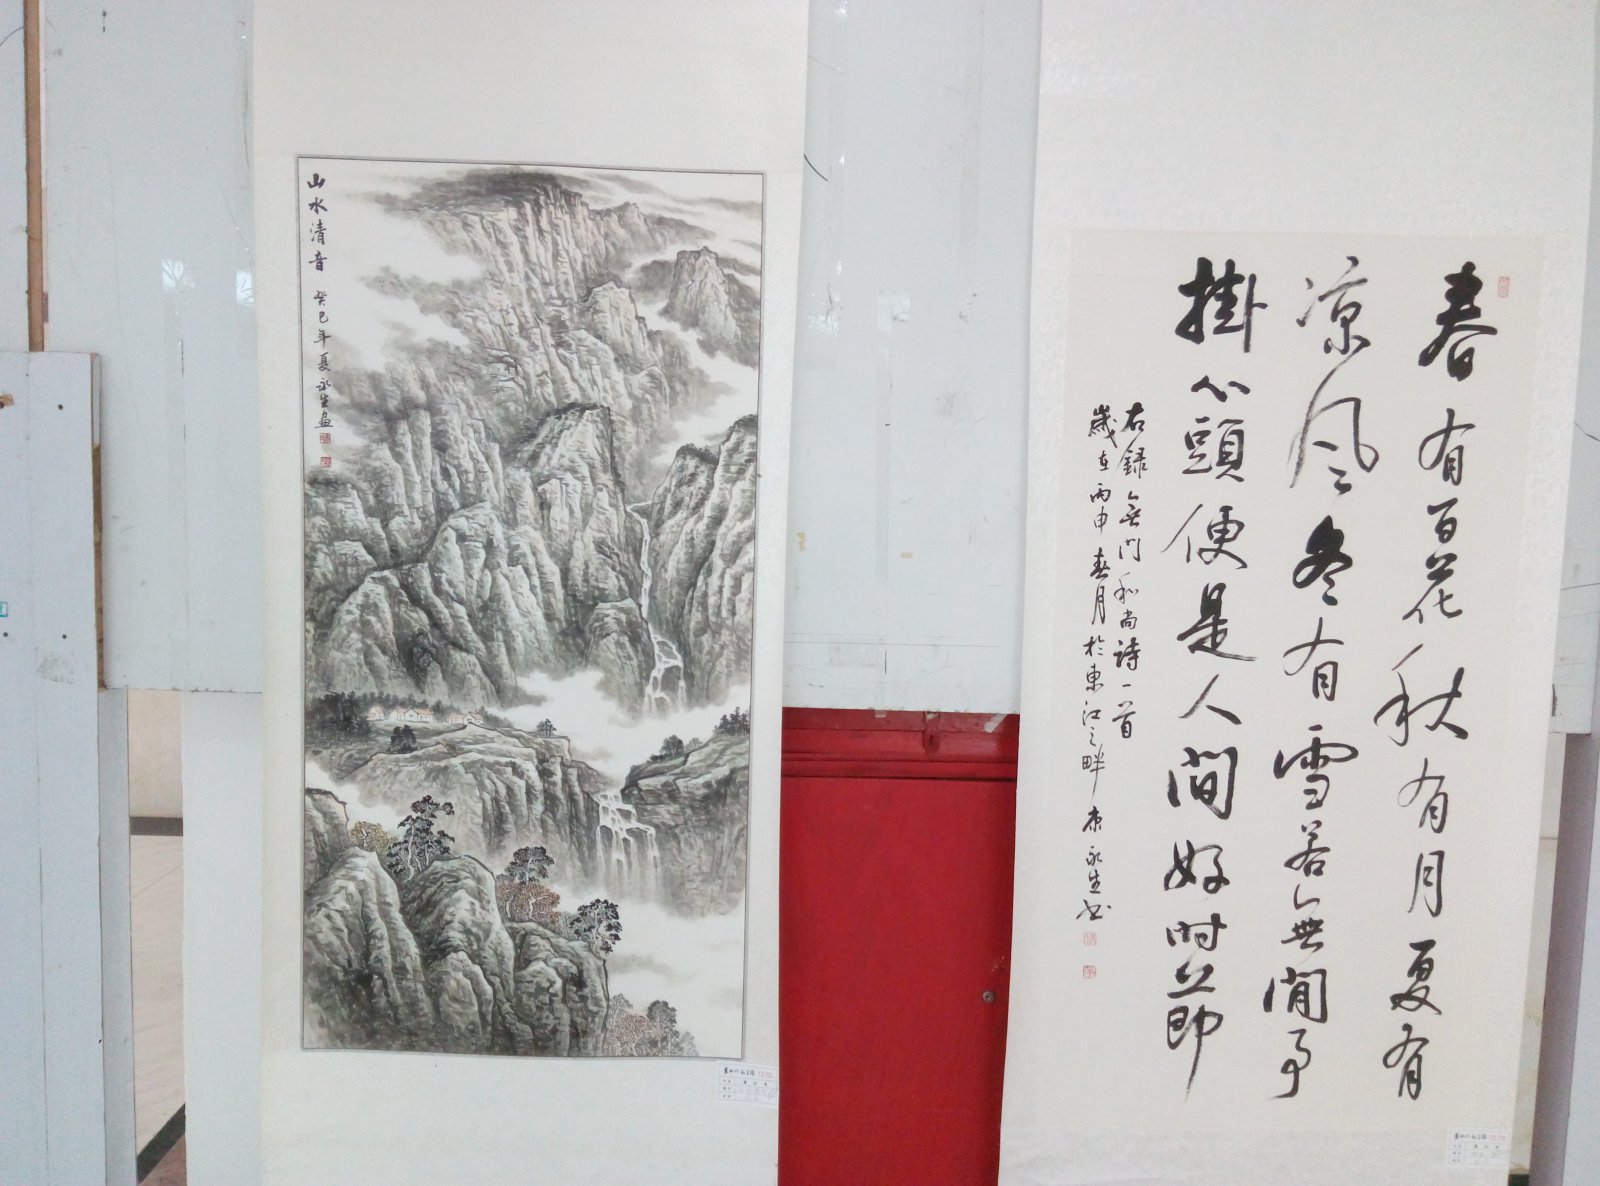 山水清音
癸巳年夏永生画
春有百花秋有月夏有
凉风冬有雪若無閒事
掛心頭便是人间好时节
右録無门和尚詩一首
歲在丙申春月於東江之畔 康永生书